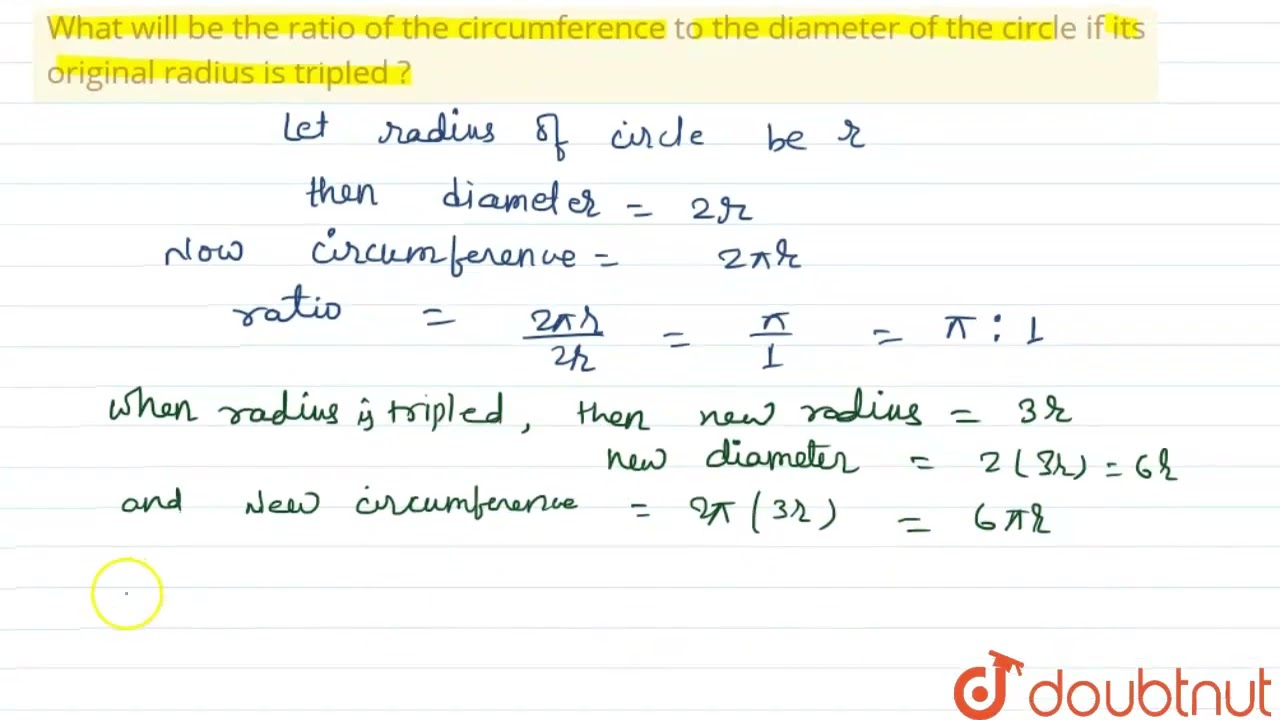 What will be the ratio of the circumference to the diameter of the circle if its
original radius is tripled ?
Let radius of circle be r
then diameter = 2r
Now circumference = 2πr
ratio = 2πr/2r = π/1 = π : 1
When radius is tripled, then new radius = 3r
new diameter = 2(3r) = 6r
and New circumference = 2π(3r) = 6πr
doubtnut